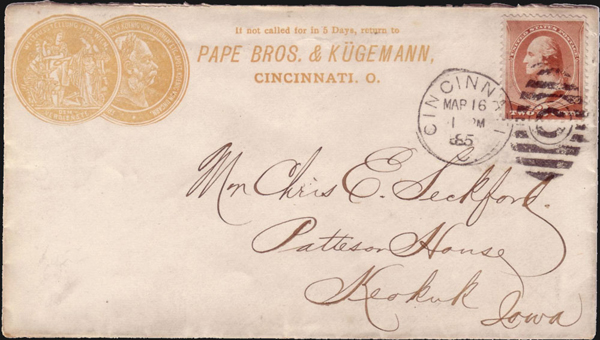 If not called for in 5 Days, return to
PAPE BROS. & KÜGEMANN,
CINCINNATI. O.
UNITED STATES POSTAGE
TWO
CINCINNATI
MAR 16
1 PM
85
O
Mr Chris E. Seckford.
Patteson House
Keokuk
Iowa